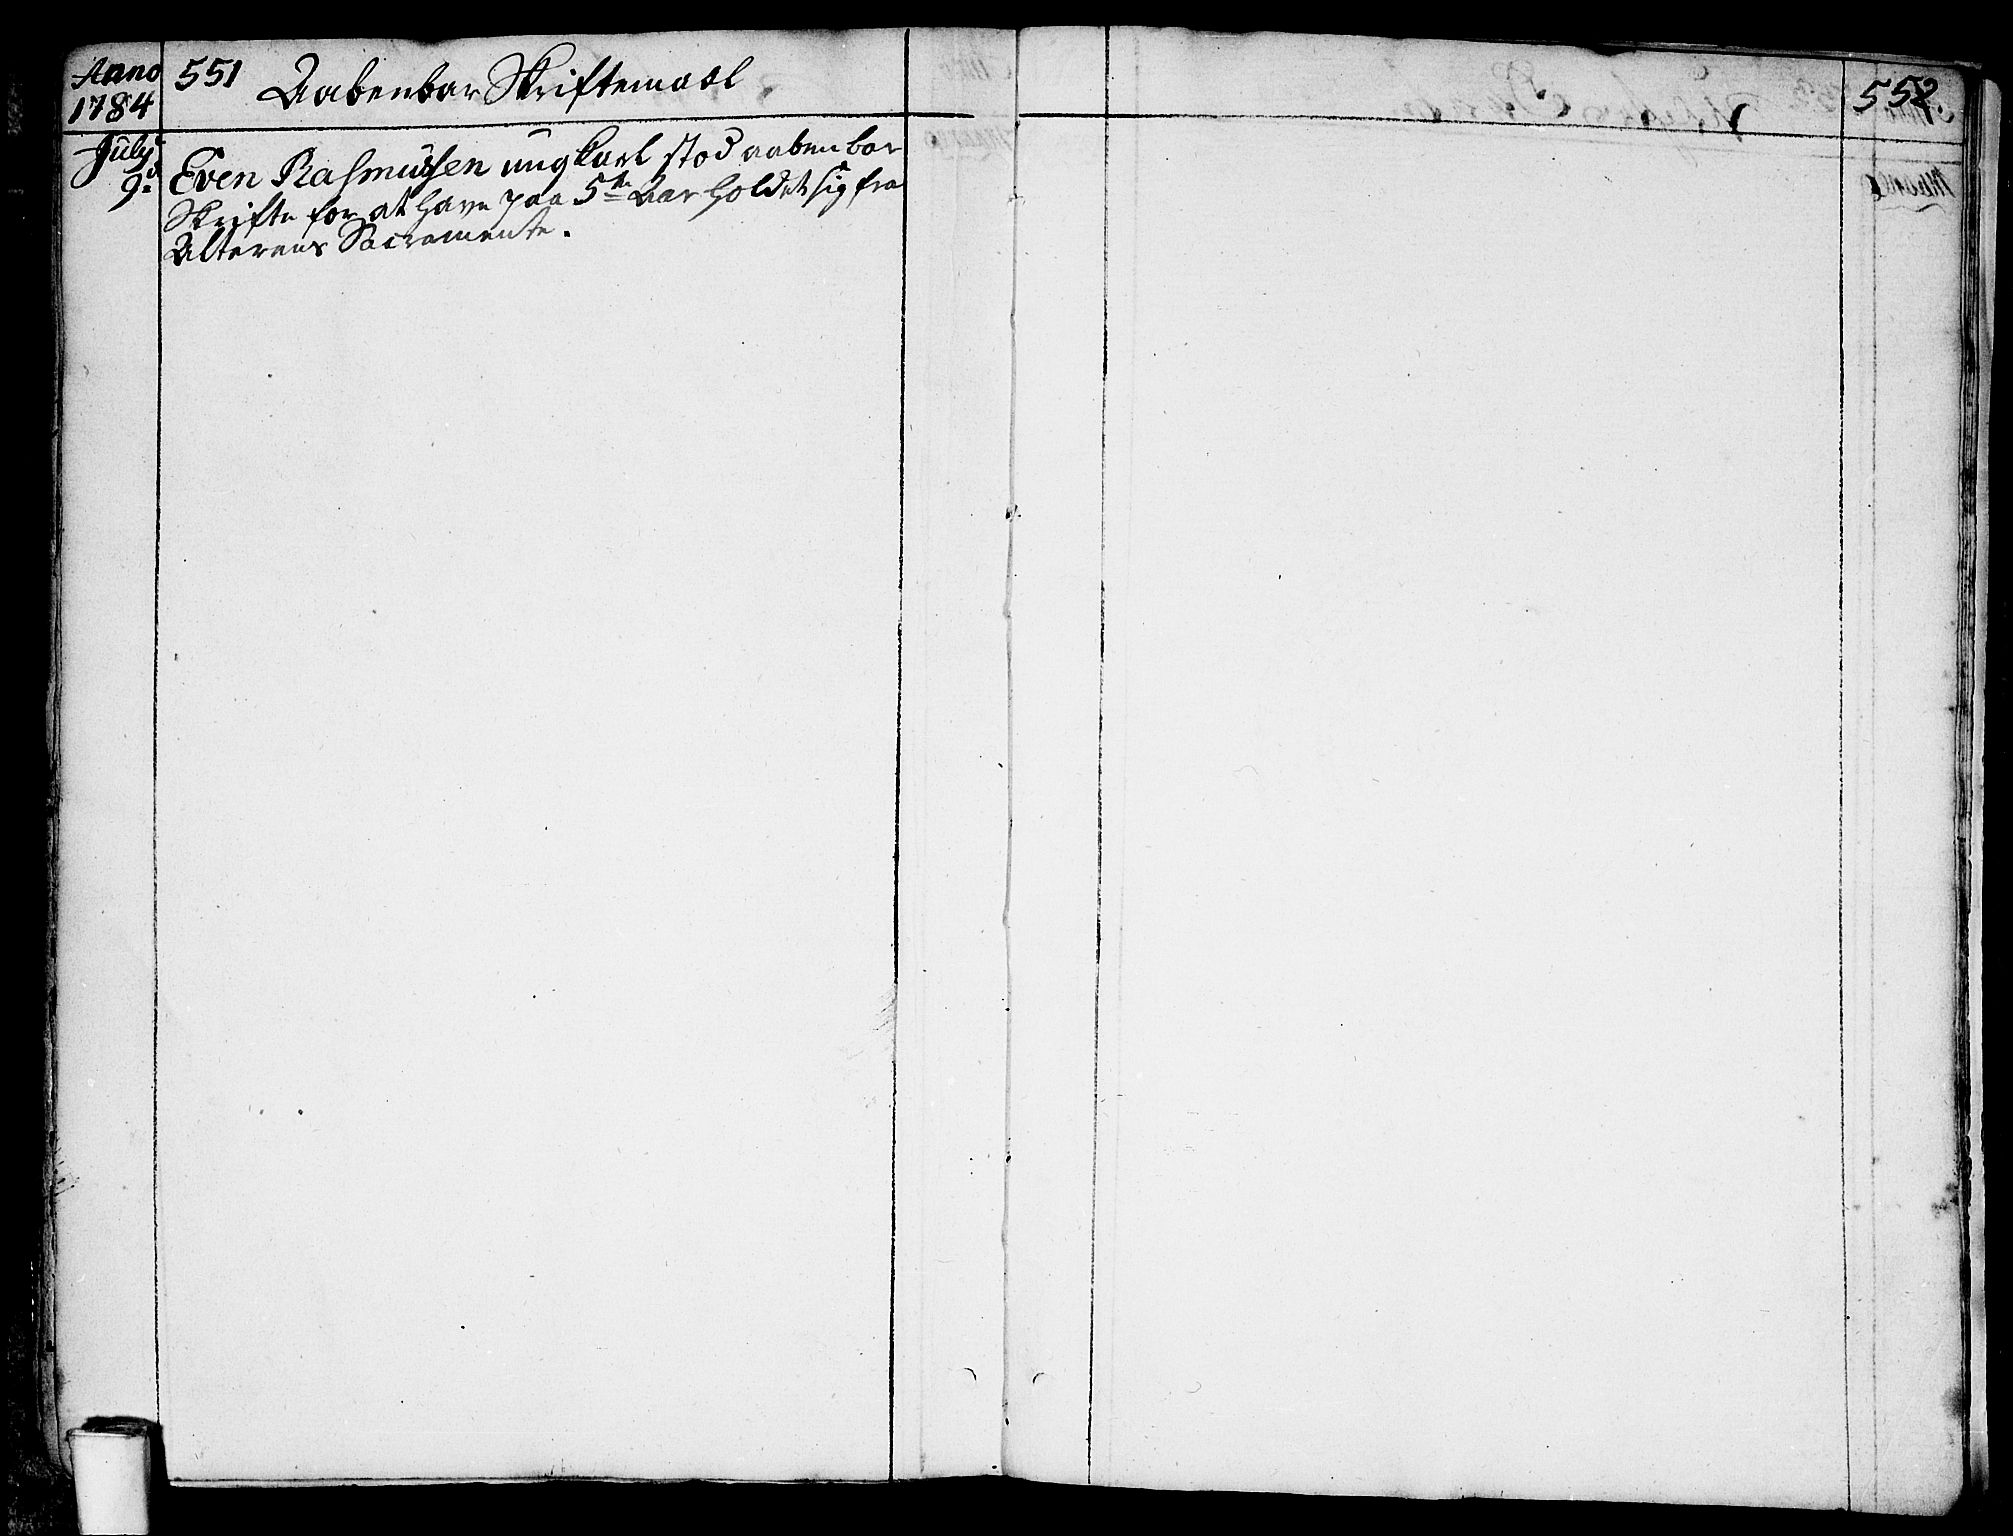 Anno 551 Aabenbar Skriftemaal
1784
July
9d Even Rasmussen ungkarl stod aabenbar
Skrifte for at have paa 5te Aar holdet sig fra
Alterens Sacramente.
552.